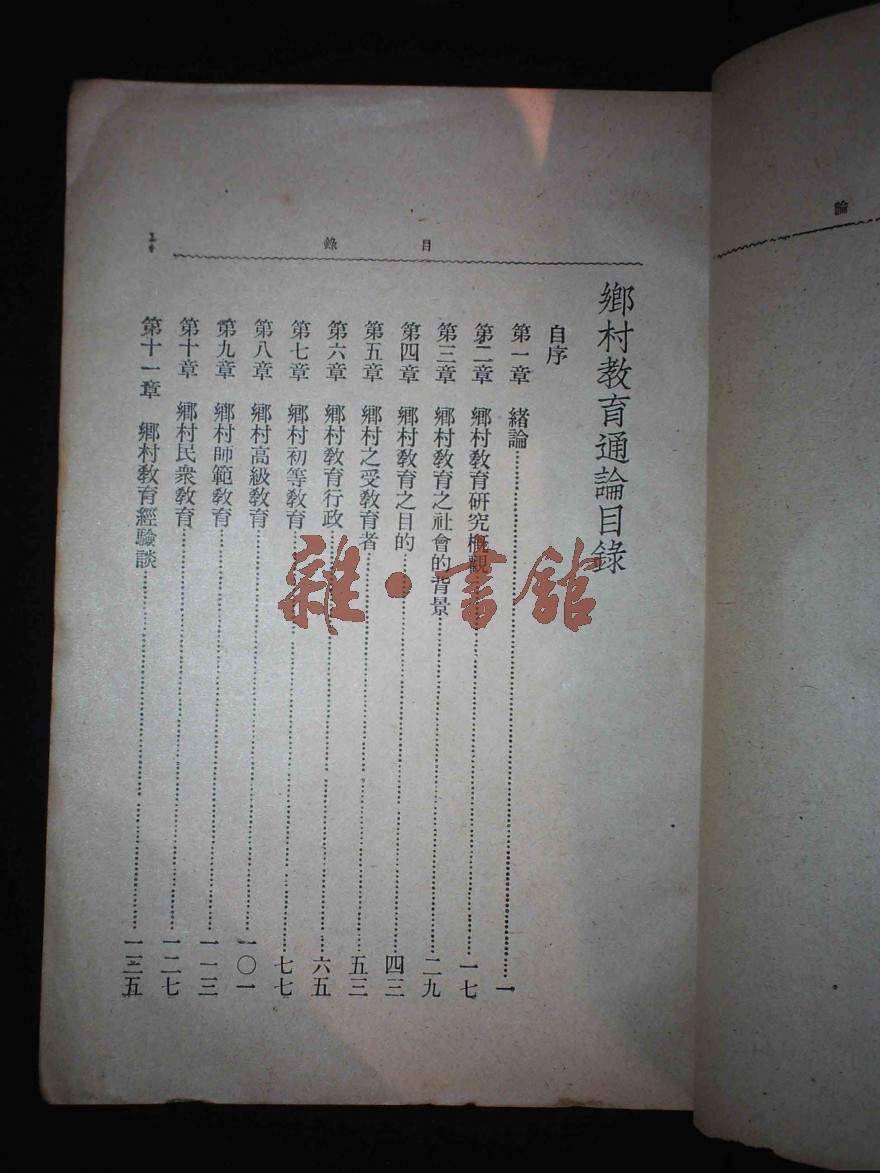 鄉村教育通論目錄
自序
第一章 緒論 一
第二章 鄉村教育研究概觀 一七
第三章 鄉村教育之社會的背景 二九
第四章 鄉村教育之目的 四三
第五章 鄉村之受教育者 五三
第六章 鄉村教育行政 六五
第七章 鄉村初等教育 七七
第八章 鄉村高級教育 一〇一
第九章 鄉村師範教育 一一三
第十章 鄉村民衆教育 一二七
第十一章 鄉村教育經驗談
目錄
論
雜·書館